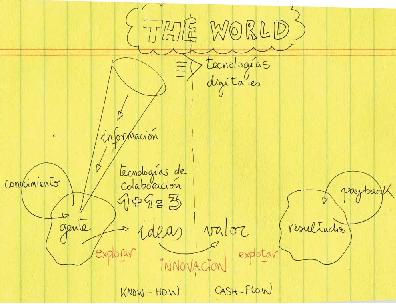 THE WORLD
tecnologías
digitales
información
tecnologías de
colaboración
conocimiento
gente
ideas valor
resultados
payback
explorar
INNOVACION
explotar
KNOW-HOW CASH-FLOW